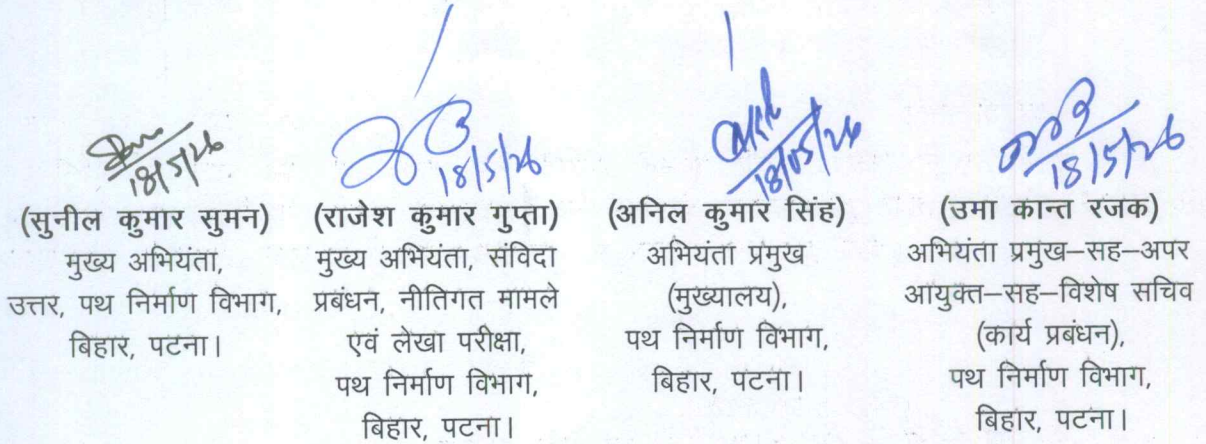 18/5/26
18/5/26
18/05/26
18/5/26
(सुनील कुमार सुमन)
मुख्य अभियंता,
उत्तर, पथ निर्माण विभाग,
बिहार, पटना।
(राजेश कुमार गुप्ता)
मुख्य अभियंता, संविदा
प्रबंधन, नीतिगत मामले
एवं लेखा परीक्षा,
पथ निर्माण विभाग,
बिहार, पटना।
(अनिल कुमार सिंह)
अभियंता प्रमुख
(मुख्यालय),
पथ निर्माण विभाग,
बिहार, पटना।
(उमा कान्त रजक)
अभियंता प्रमुख–सह–अपर
आयुक्त–सह–विशेष सचिव
(कार्य प्रबंधन),
पथ निर्माण विभाग,
बिहार, पटना।